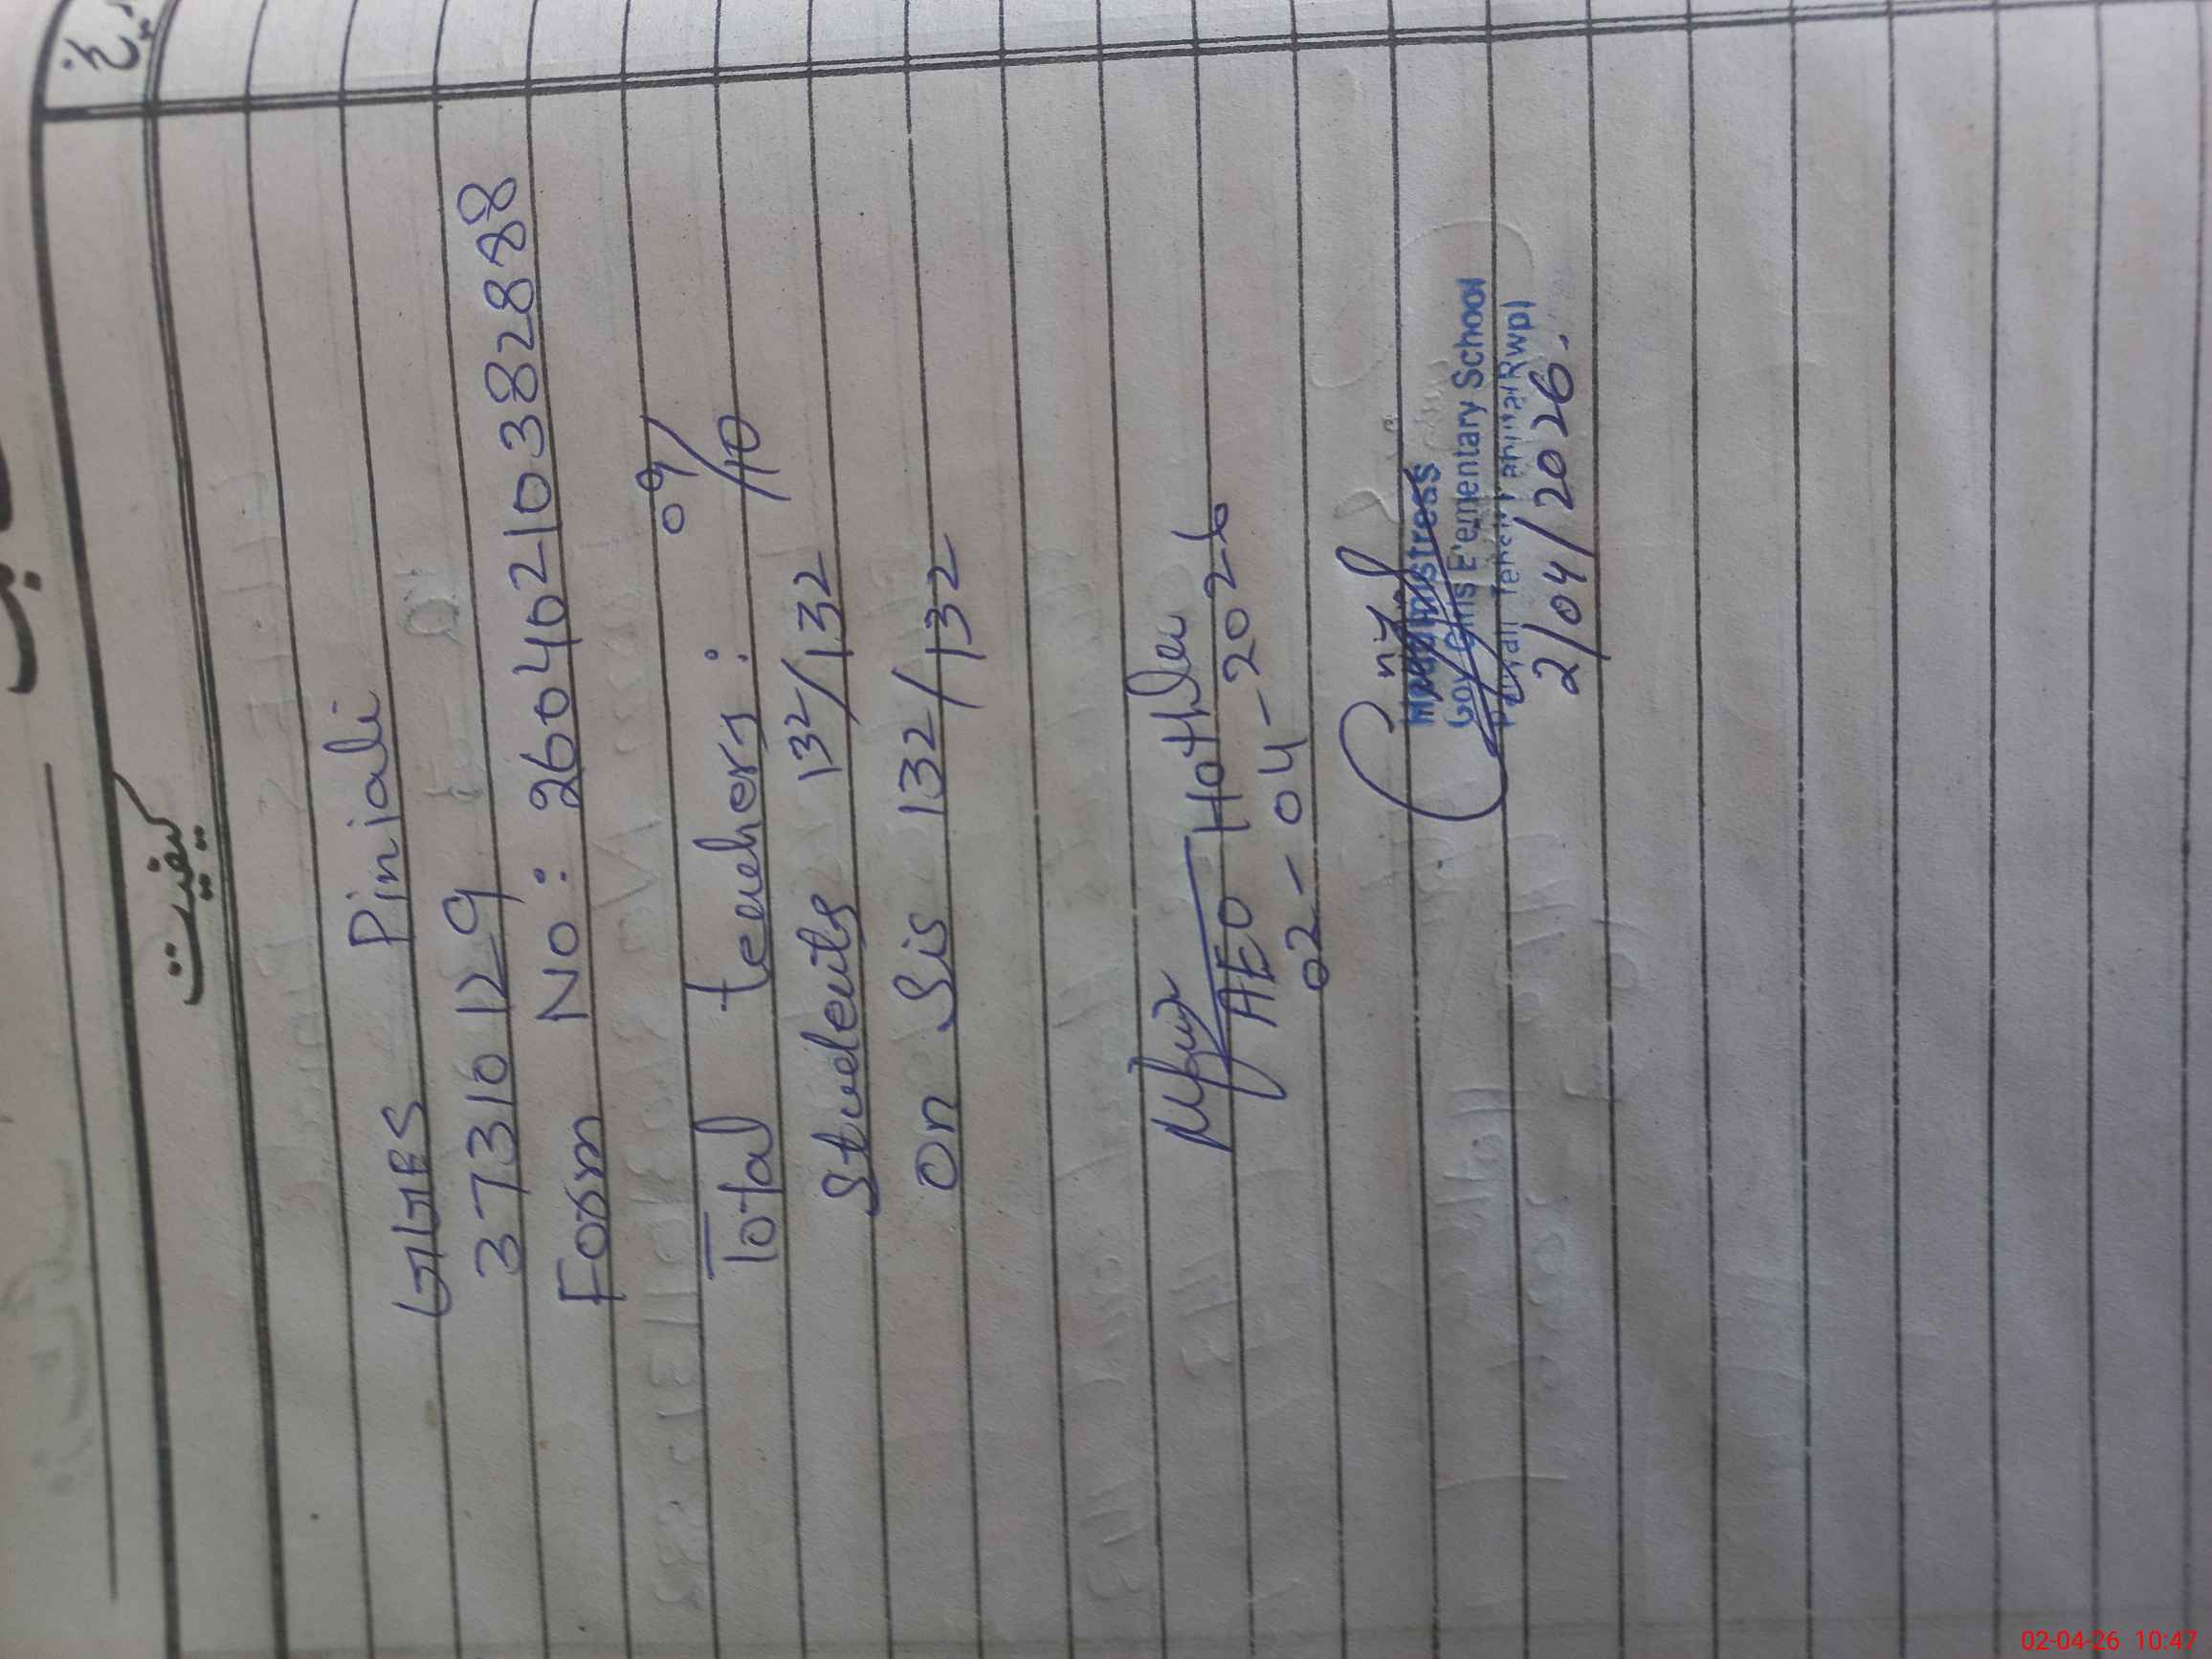 کیفیت
GGES Piniali
37310129
Form No: 26040210382888
Total teachers: 09/10
Students 132/132
On Sis 132/132
AEO Hothla
02-04-2026
Headmistress
Gov Girls Elementary School
Rwpl
2/04/2026.
02-04-26 10:47